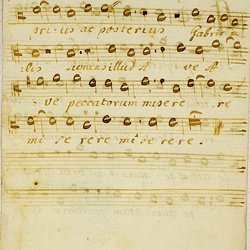 prius ac posterius Gabrie
lis sumens illud A ve A
ve peccatorum misere re
mi se rere miserere.